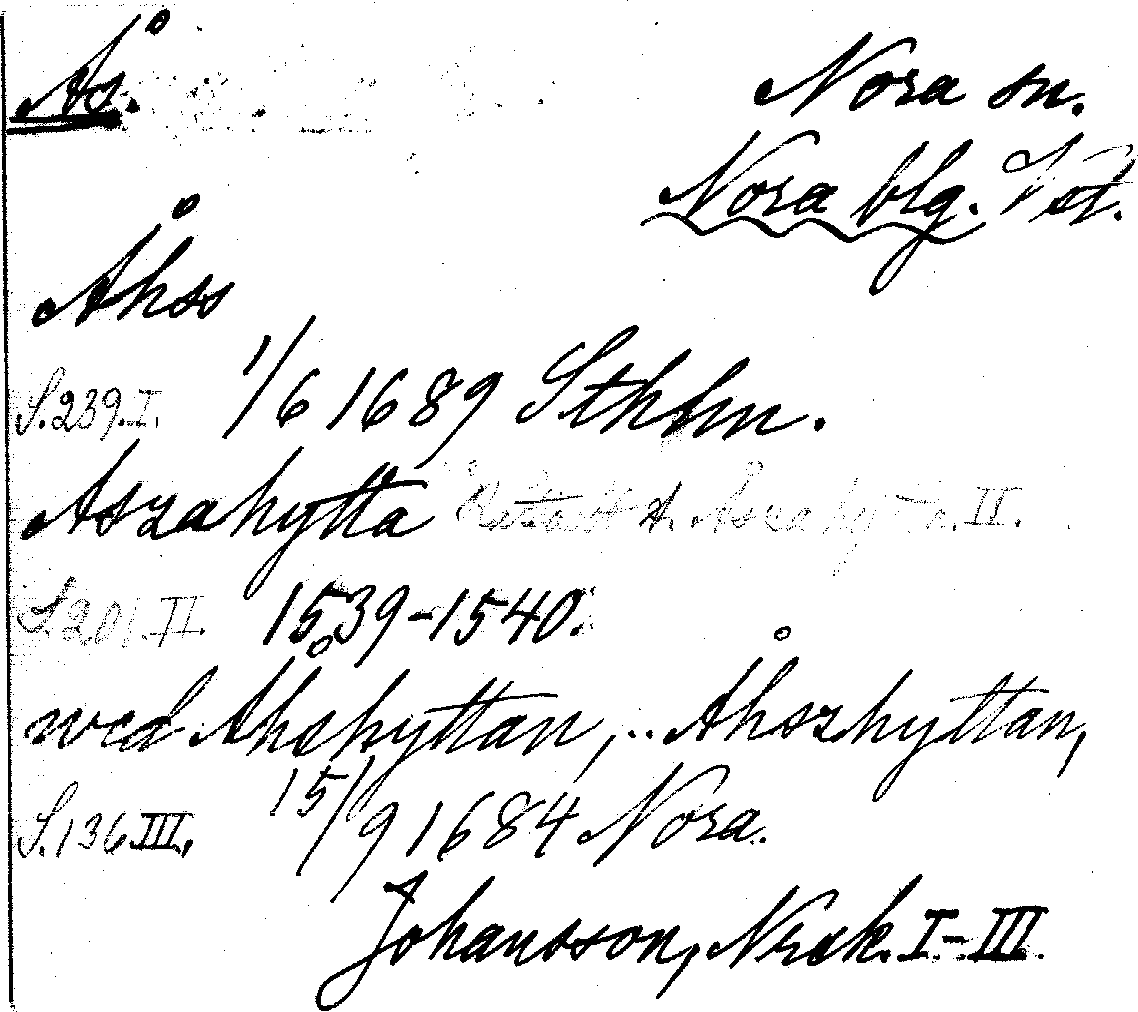 Ås.
Nora sn.
Nora blg. Vstl.
Åhss
S. 239. I. 1/6 1689 Sthlm.
Aszahytta
S. 201. II. 1539-1540.
wed Åhshyttan, .. Åhszhyttan,
S. 136 III. 15/9 1684 Nora.
Johansson, Norak. I-III.